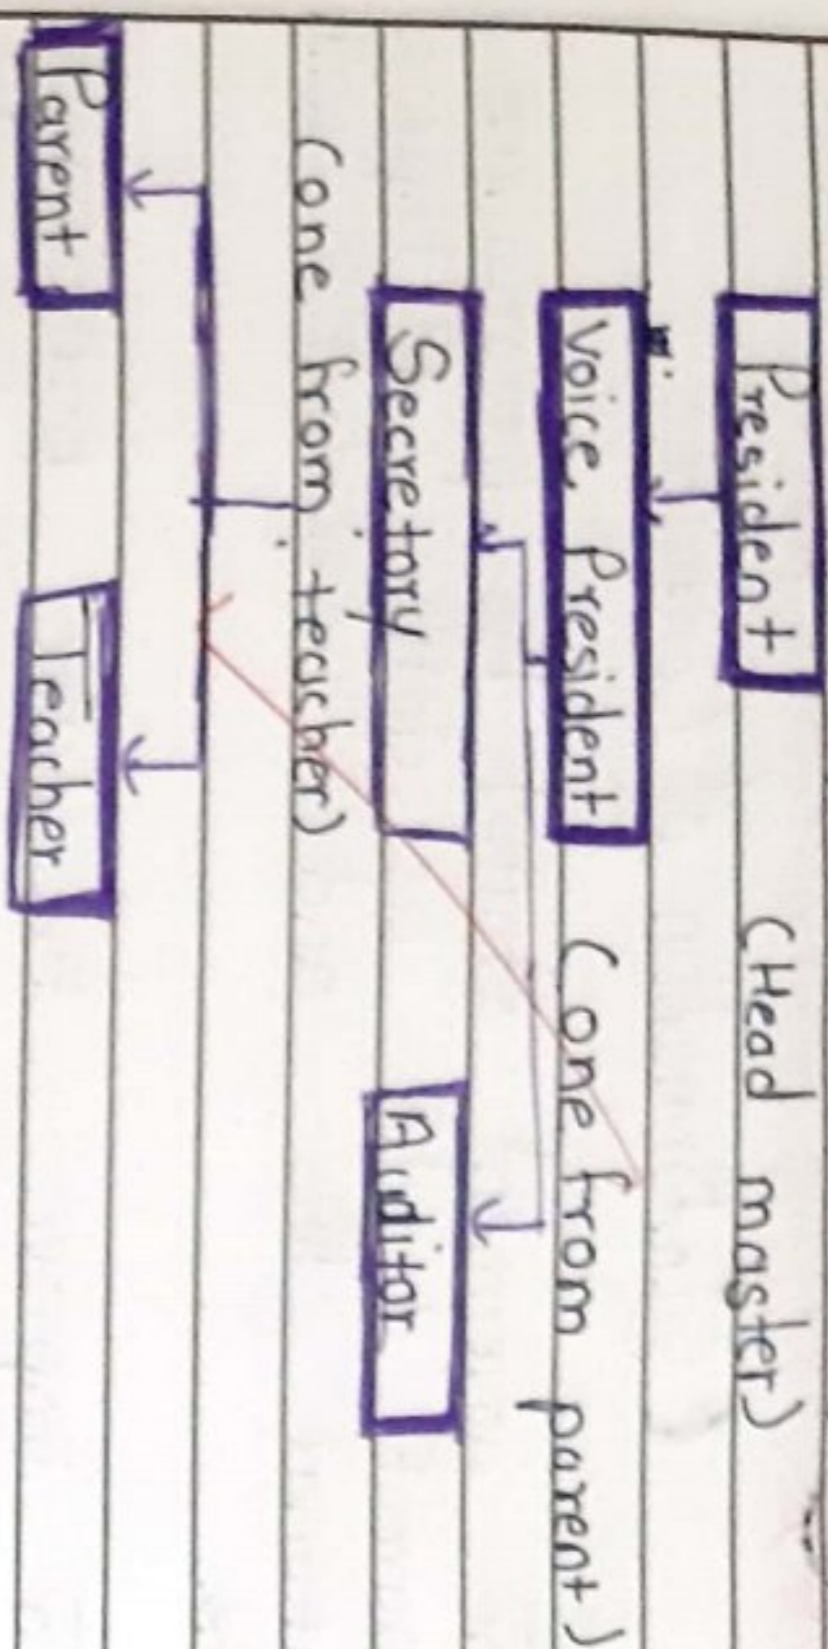 President (Head master)
Voice President (one from parent)
Secretory Auditor
(one from teacher)
Parent Teacher